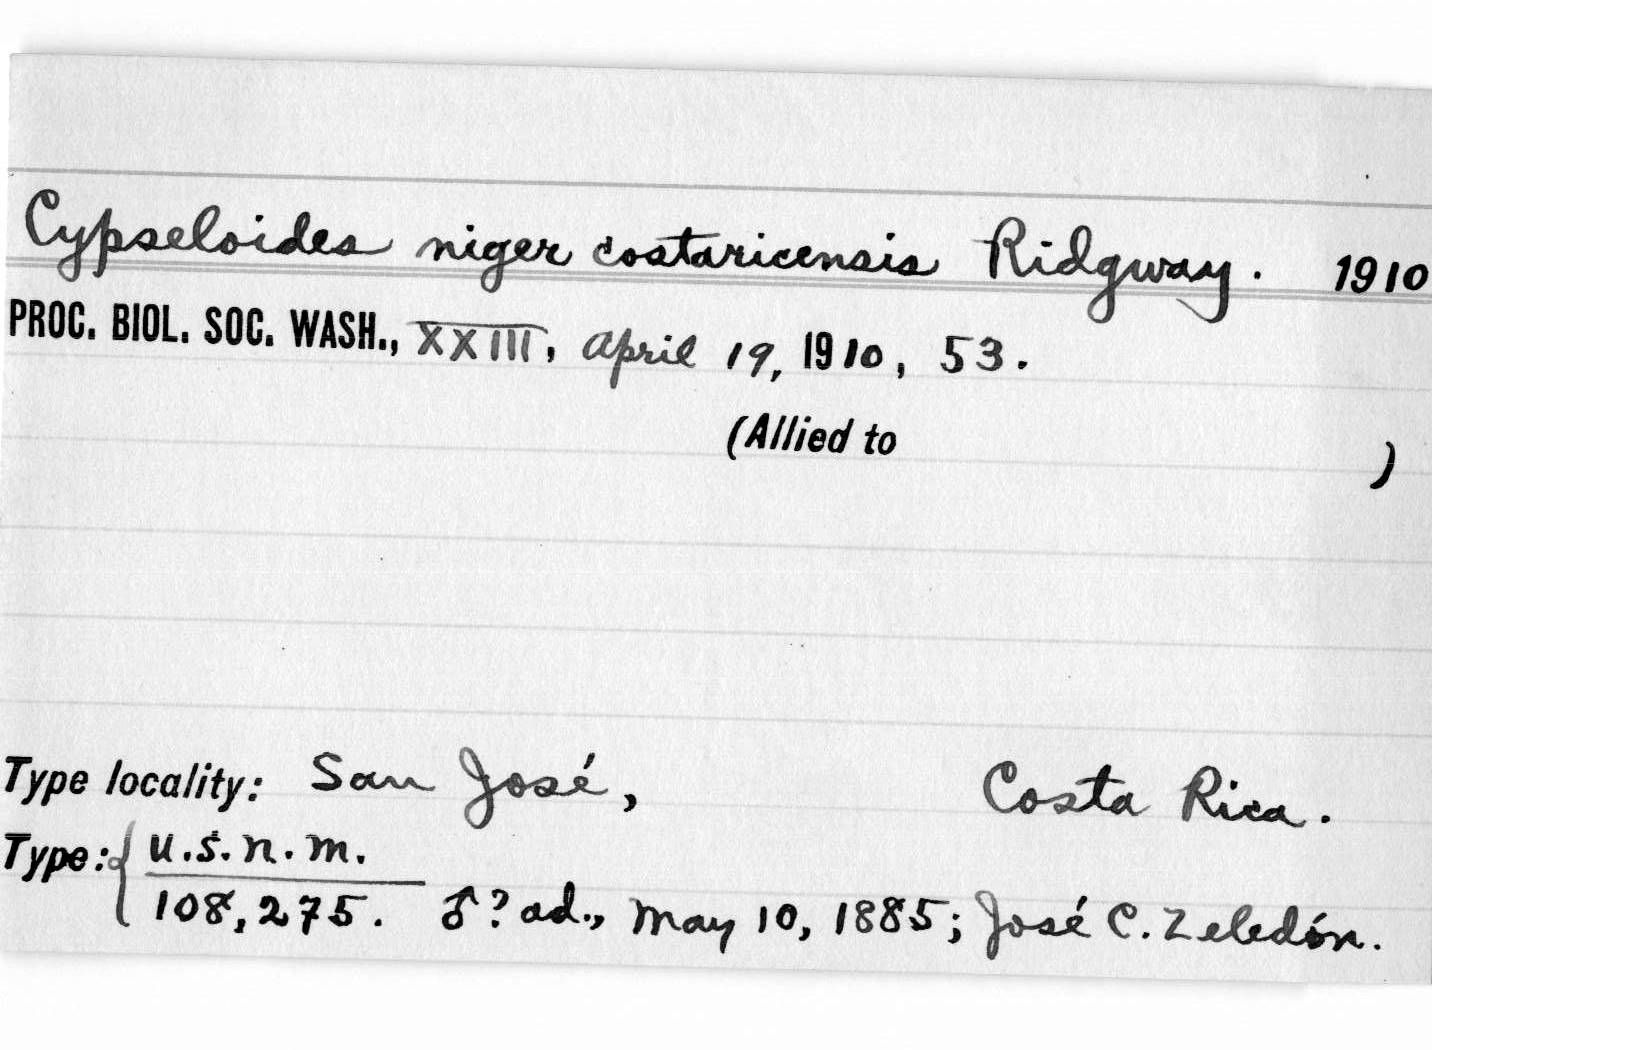 Cypseloides niger costaricensis Ridgway. 1910
PROC. BIOL. SOC. WASH., XXIII, April 19, 1910, 53.
(Allied to )
Type locality: San José, Costa Rica.
Type: { U.S.N.M.
108,275. ♂? ad., May 10, 1885; José C. Zeledón.